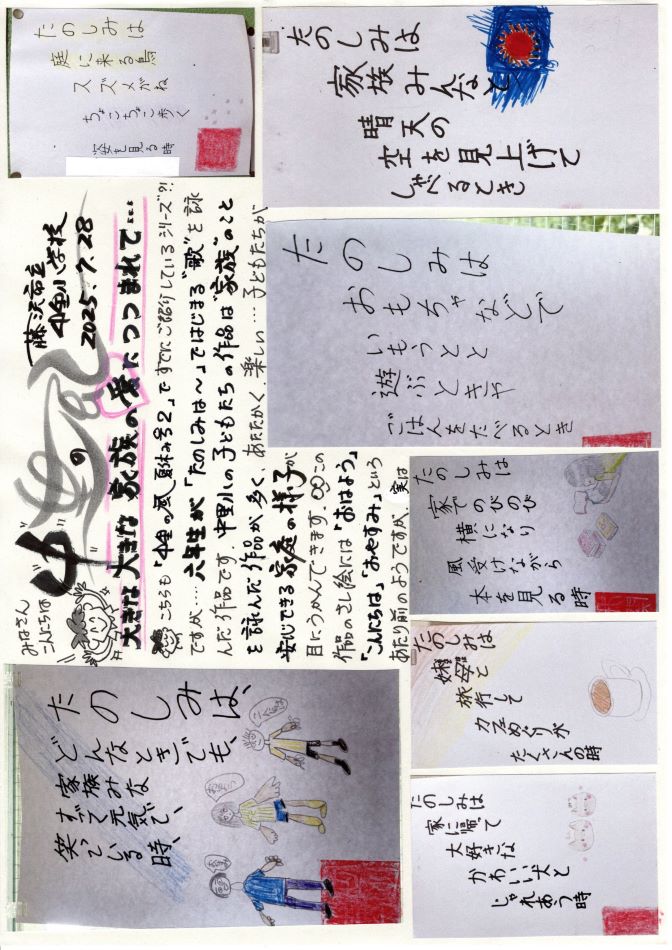 みなさん
こんにちは
中里の風
藤沢市立
中里小学校
2025.7.28
大きな大きな家族の愛につつまれて…
こちらも「中里の風夏休み号2」ですでにご紹介しているシリーズ!?
ですが…六年生が「たのしみは〜」ではじまる"歌"を詠
んだ作品です。中里小の子どもたちの作品は"家族"のこと
を詠んだ作品が多く、あたたかく、楽しい…子どもたちが
安心できる家庭の様子が
目にうかんできます。この
作品のさし絵には「おはよう」
「こんにちは」「おやすみ」という
あたり前のようですが、実は
たのしみは
庭に来る鳥
スズメがね
ちょこちょこ歩く
姿を見る時
たのしみは
家族みんなと
晴天の
空を見上げて
しゃべるとき
たのしみは
おもちゃなどで
いもうとと
遊ぶときや
ごはんをたべるとき
たのしみは
家でのびのび
横になり
風受けながら
本を見る時
たのしみは
旅行して
カフェめぐりが
たくさんの時
たのしみは
家に帰って
大好きな
かわいい犬と
じゃれあう時
たのしみは、
どんなときでも、
家族みな
ずっと元気で、
笑っている時、